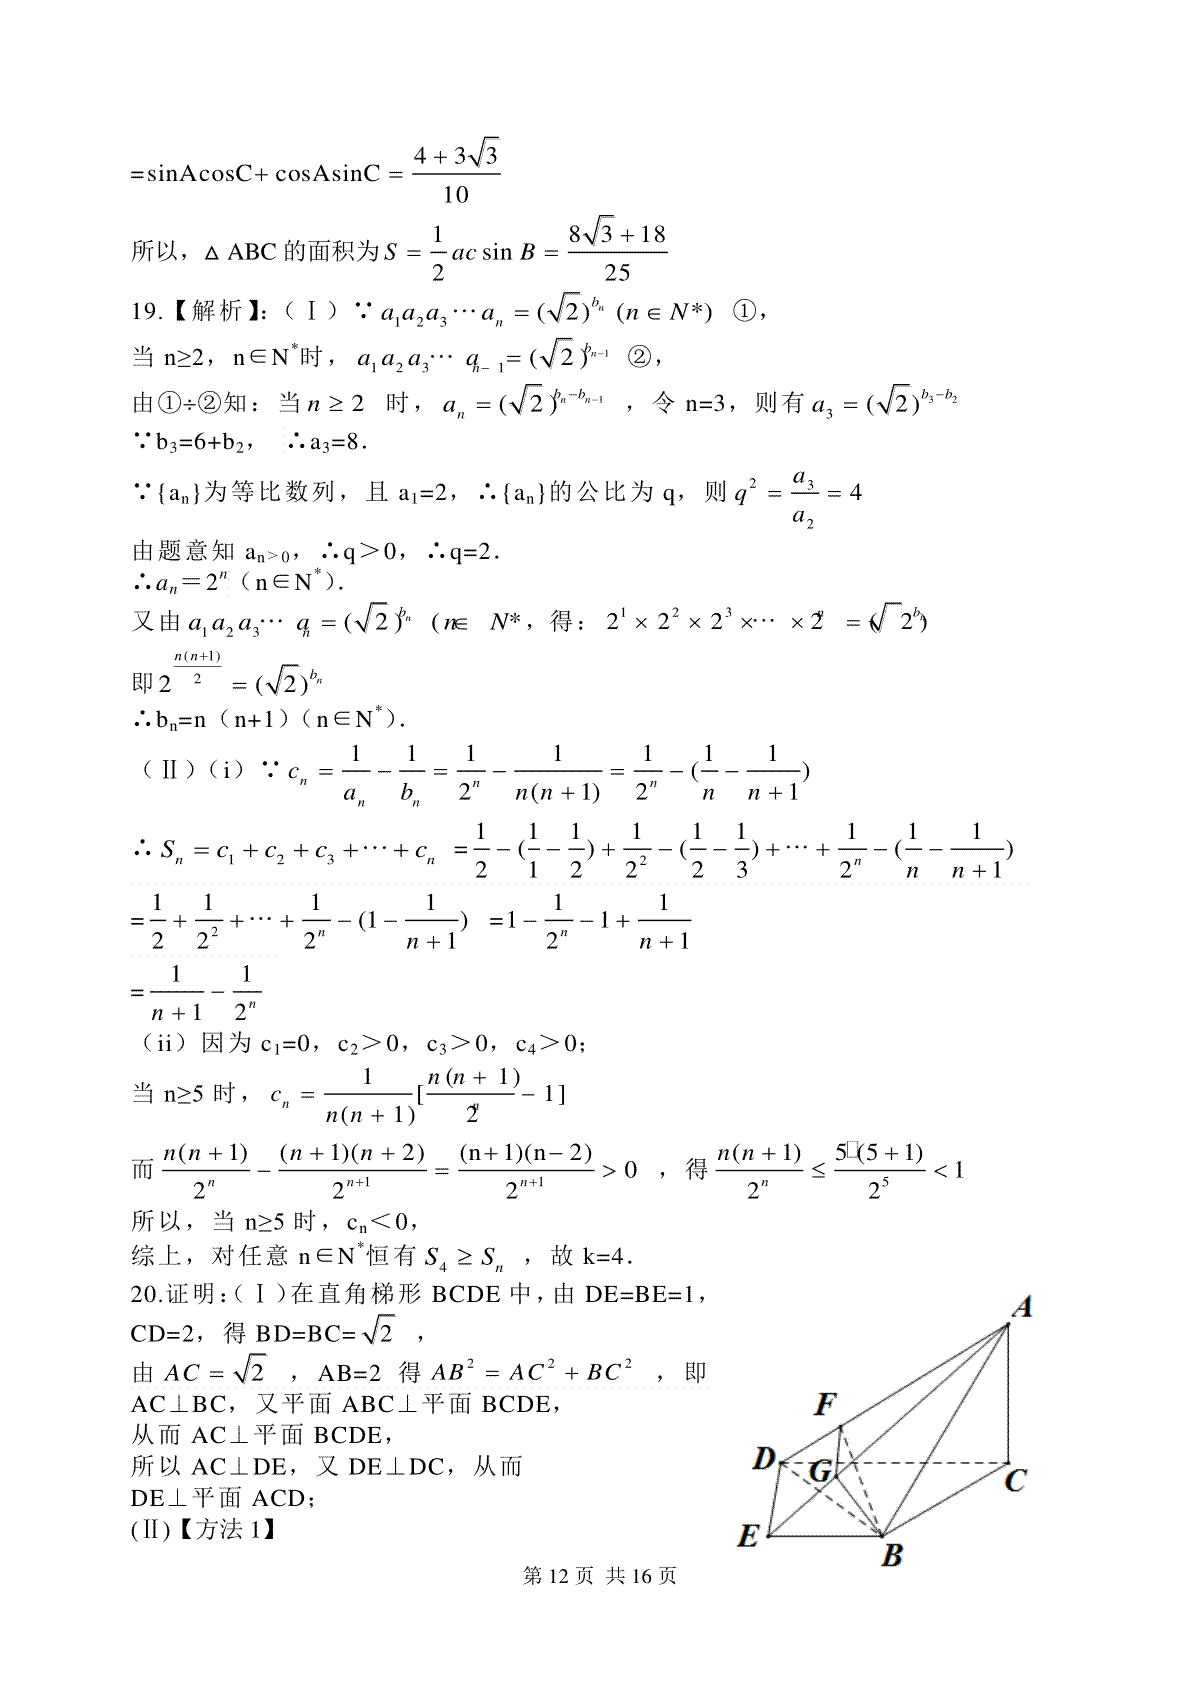 =sinAcosC+ cosAsinC = (4+3√3)/10
所以，△ ABC 的面积为 S = 1/2 ac sin B = (8√3+18)/25
19.【解析】：（Ⅰ）∵ a₁a₂a₃⋯aₙ = (√2)^{bₙ} (n∈N*) ①，
当 n≥2，n∈N*时， a₁a₂a₃⋯aₙ₋₁ = (√2)^{bₙ₋₁} ②，
由①÷②知：当 n≥2 时， aₙ = (√2)^{bₙ−bₙ₋₁} ，令 n=3，则有 a₃ = (√2)^{b₃−b₂}
∵b₃=6+b₂， ∴a₃=8．
∵{aₙ}为等比数列，且 a₁=2，∴{aₙ}的公比为 q，则 q² = a₃/a₂ = 4
由题意知 aₙ>₀，∴q＞0，∴q=2．
∴aₙ＝2ⁿ（n∈N*）．
又由 a₁a₂a₃⋯aₙ = (√2)^{bₙ} (n∈ N*，得：2¹×2²×2³×⋯×2ⁿ = (√2)^{bₙ}
即 2^{n(n+1)/2} = (√2)^{bₙ}
∴bₙ=n（n+1）（n∈N*）．
（Ⅱ）（i）∵ cₙ = 1/aₙ − 1/bₙ = 1/2ⁿ − 1/(n(n+1)) = 1/2ⁿ − (1/n − 1/(n+1))
∴ Sₙ = c₁+c₂+c₃+⋯+cₙ = 1/2 − (1/1 − 1/2) + 1/2² − (1/2 − 1/3) + ⋯ + 1/2ⁿ − (1/n − 1/(n+1))
= 1/2 + 1/2² + ⋯ + 1/2ⁿ − (1 − 1/(n+1)) = 1 − 1/2ⁿ − 1 + 1/(n+1)
= 1/(n+1) − 1/2ⁿ
（ii）因为 c₁=0，c₂＞0，c₃＞0，c₄＞0；
当 n≥5 时， cₙ = 1/(n(n+1)) [n(n+1)/2ⁿ − 1]
而 n(n+1)/2ⁿ − (n+1)(n+2)/2ⁿ⁺¹ = (n+1)(n−2)/2ⁿ⁺¹ > 0 ，得 n(n+1)/2ⁿ ≤ 5□(5+1)/2⁵ < 1
所以，当 n≥5 时，cₙ＜0，
综上，对任意 n∈N*恒有 S₄ ≥ Sₙ ，故 k=4．
20.证明：（Ⅰ）在直角梯形 BCDE 中，由 DE=BE=1，
CD=2，得 BD=BC= √2 ，
由 AC = √2 ，AB=2 得 AB² = AC² + BC² ，即
AC⊥BC，又平面 ABC⊥平面 BCDE，
从而 AC⊥平面 BCDE，
所以 AC⊥DE，又 DE⊥DC，从而
DE⊥平面 ACD；
(Ⅱ)【方法 1】
A
F
D
G
C
E
B
第 12 页 共 16 页